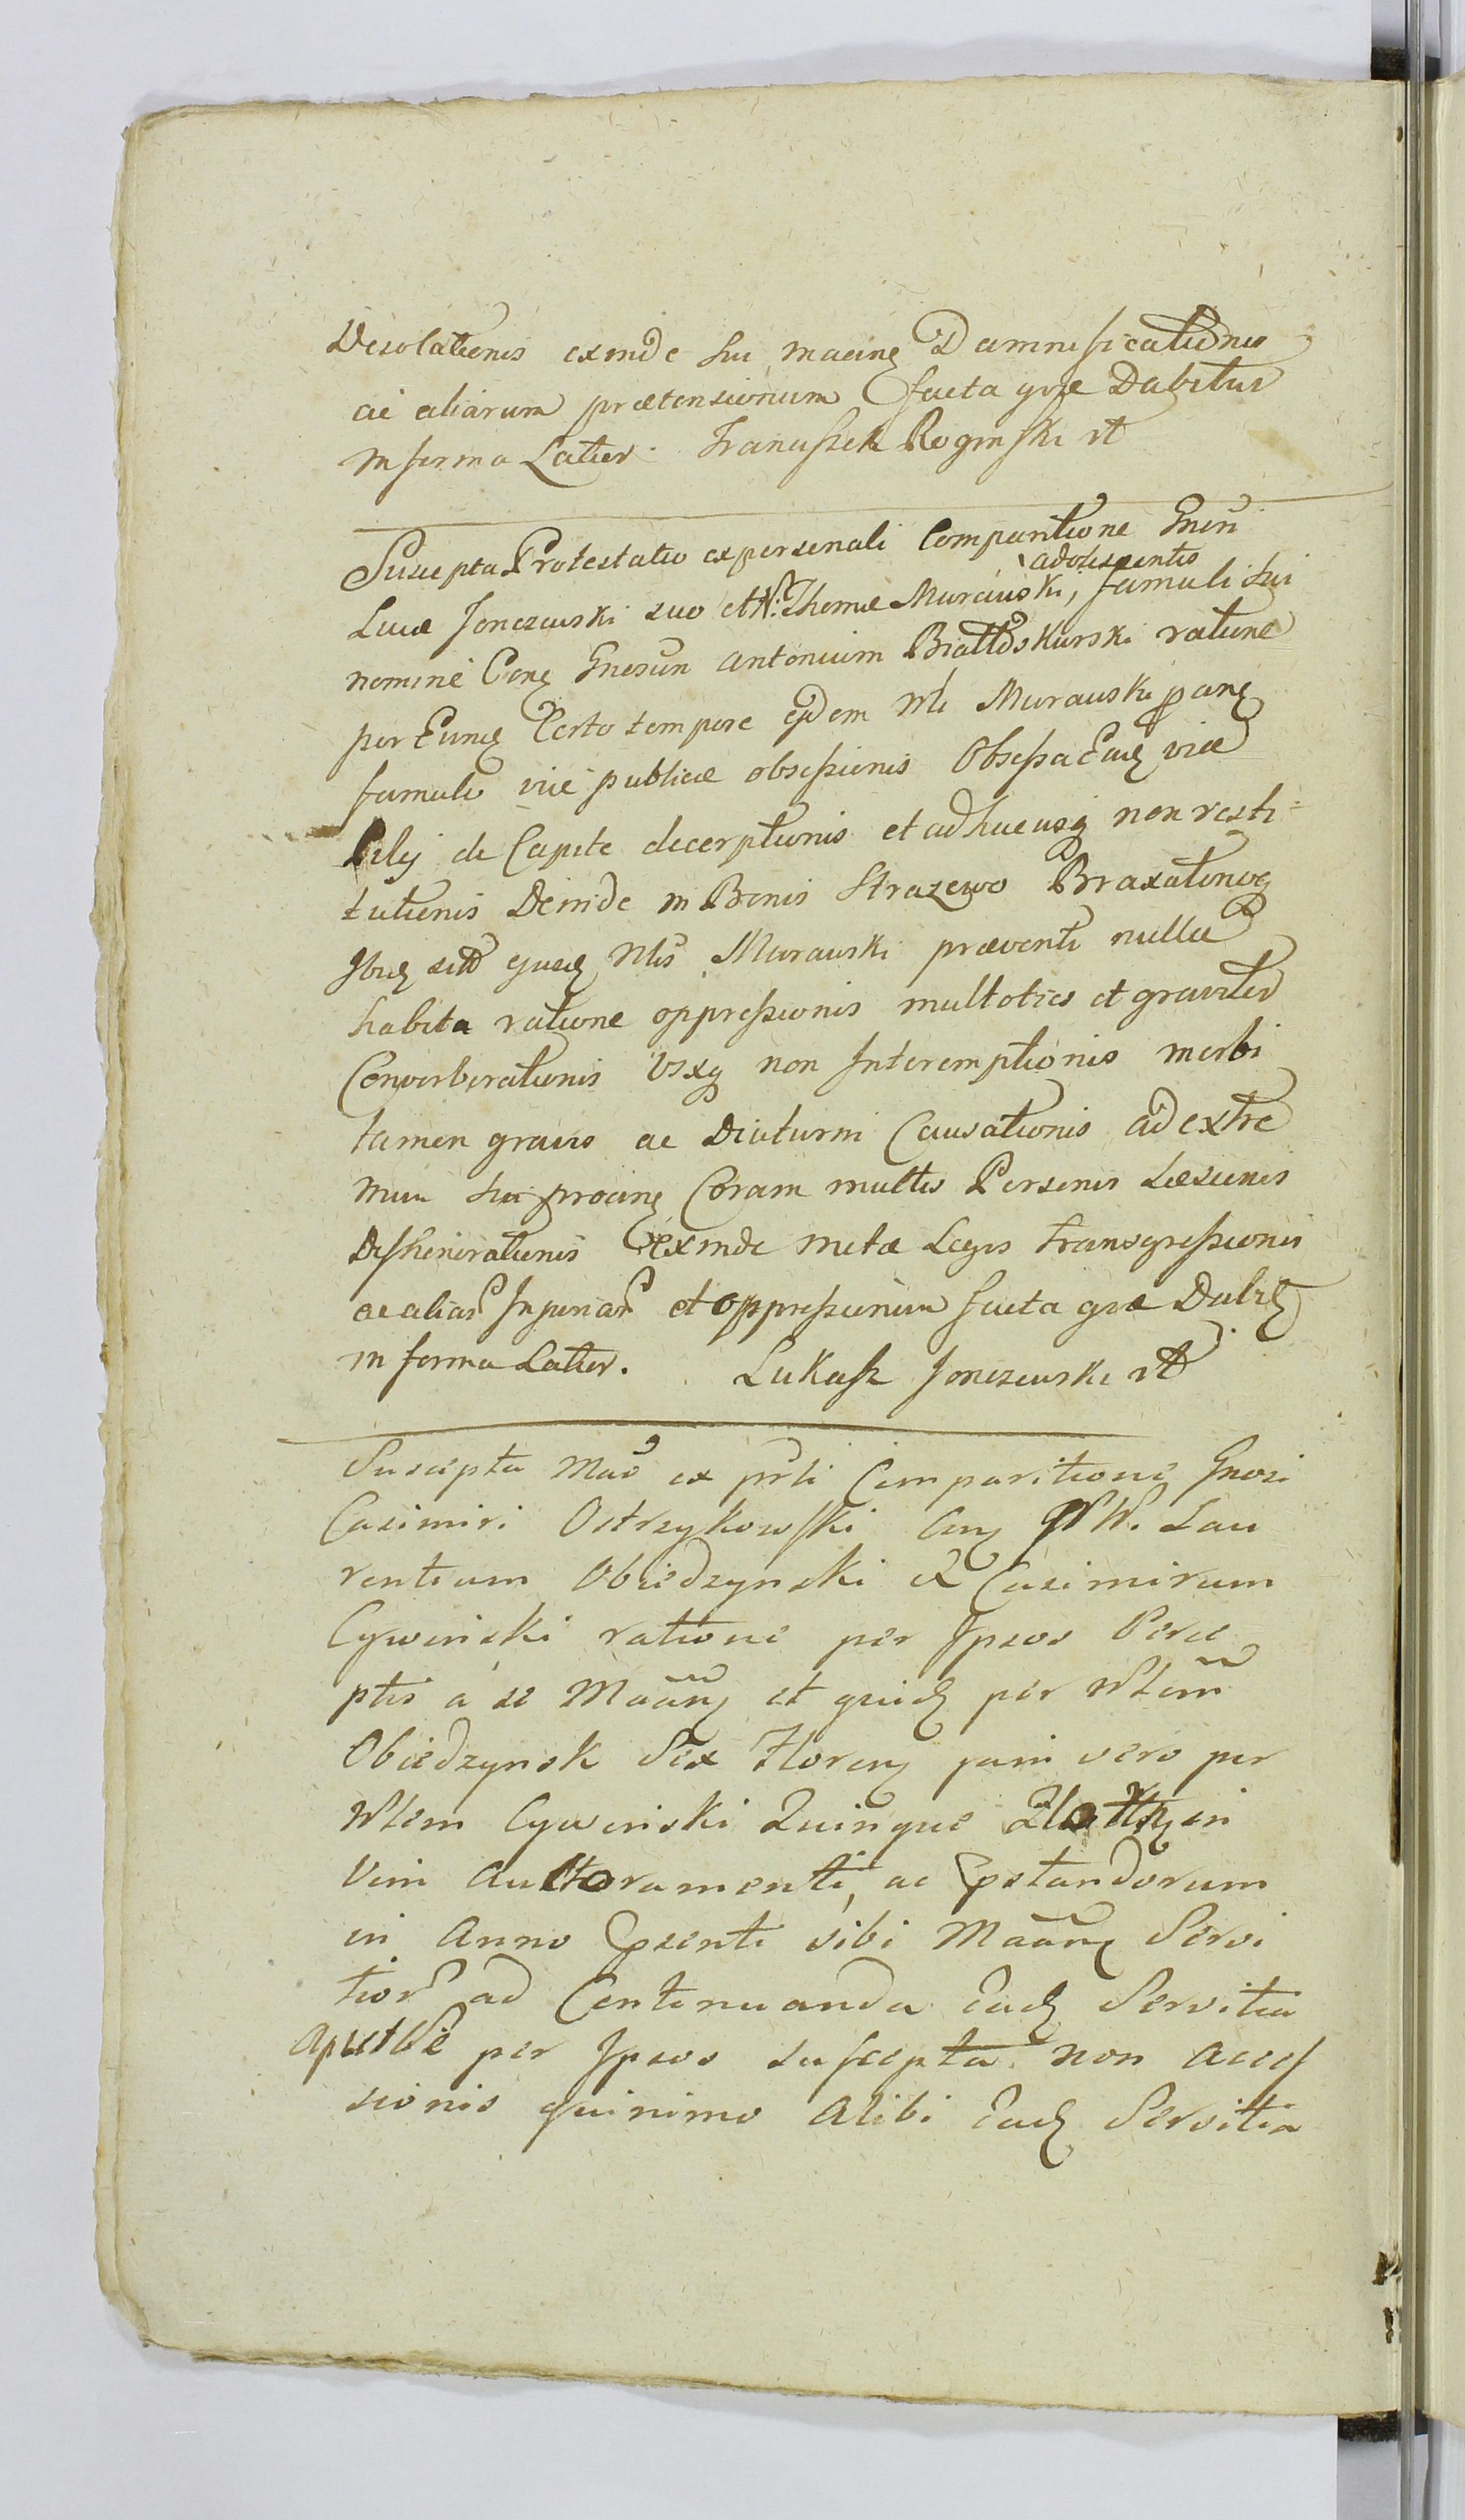 Desolationis exinde sui maeing Damnificationis
ac aliarum praetensionum facta quae Dabitur
in forma Latior. Franciszek Roginski rt
Suscepta Protestatio ex personali Comparitione Gnesi
adolescentis
Lucae Jonczewski suo et N. Thomae Murawski, famuli sui
nomine Cong Gnosum Antonium Białłoskurski ratione
per Eunq Certo tempore ejdem Nli Murawski
famulo viae publicae obsessionis Obsessa Eadq via
Pilej de Capite decerptionis et adhucusq non resti-
tutionis Deinde in Bonis Strazewo
Ibiq ejusq Nlis Murawski praeventi nulla
habita ratione oppressionis multoties et graviter
Converberationis Usq non Interemptionis morbi
tamen gravis ac Diuturni Causationis ad extre
mum sui Coram multis Personis Laesionis
Dishonorationis exinde metae Legis transgressionis
ac aliar Injuriar et oppressionum facta quae Dabit
in forma Latior. Łukasz Jonczewski rt
Suscepta Mão ex prli Comparitione Gnosi
Casimiri Ostrzykowski Cong NN. Lau
rentium Obiedzynski & Casimirum
Cywinski ratione per Ipsos Perce
ptis a se Mãang et quidq per Nlem
Obiedzynsk Sex Floreng jam vero per
Nlem Cywinski Quinque in
Vim Auctoramenti, ac pstandorum
in Anno psenti sibi Mãang Servi
tior ad Continuanda Eadq Servitia
apud Se per Ipsos suscepta non acces
sionis quinimo Alibi Eadq Servitia